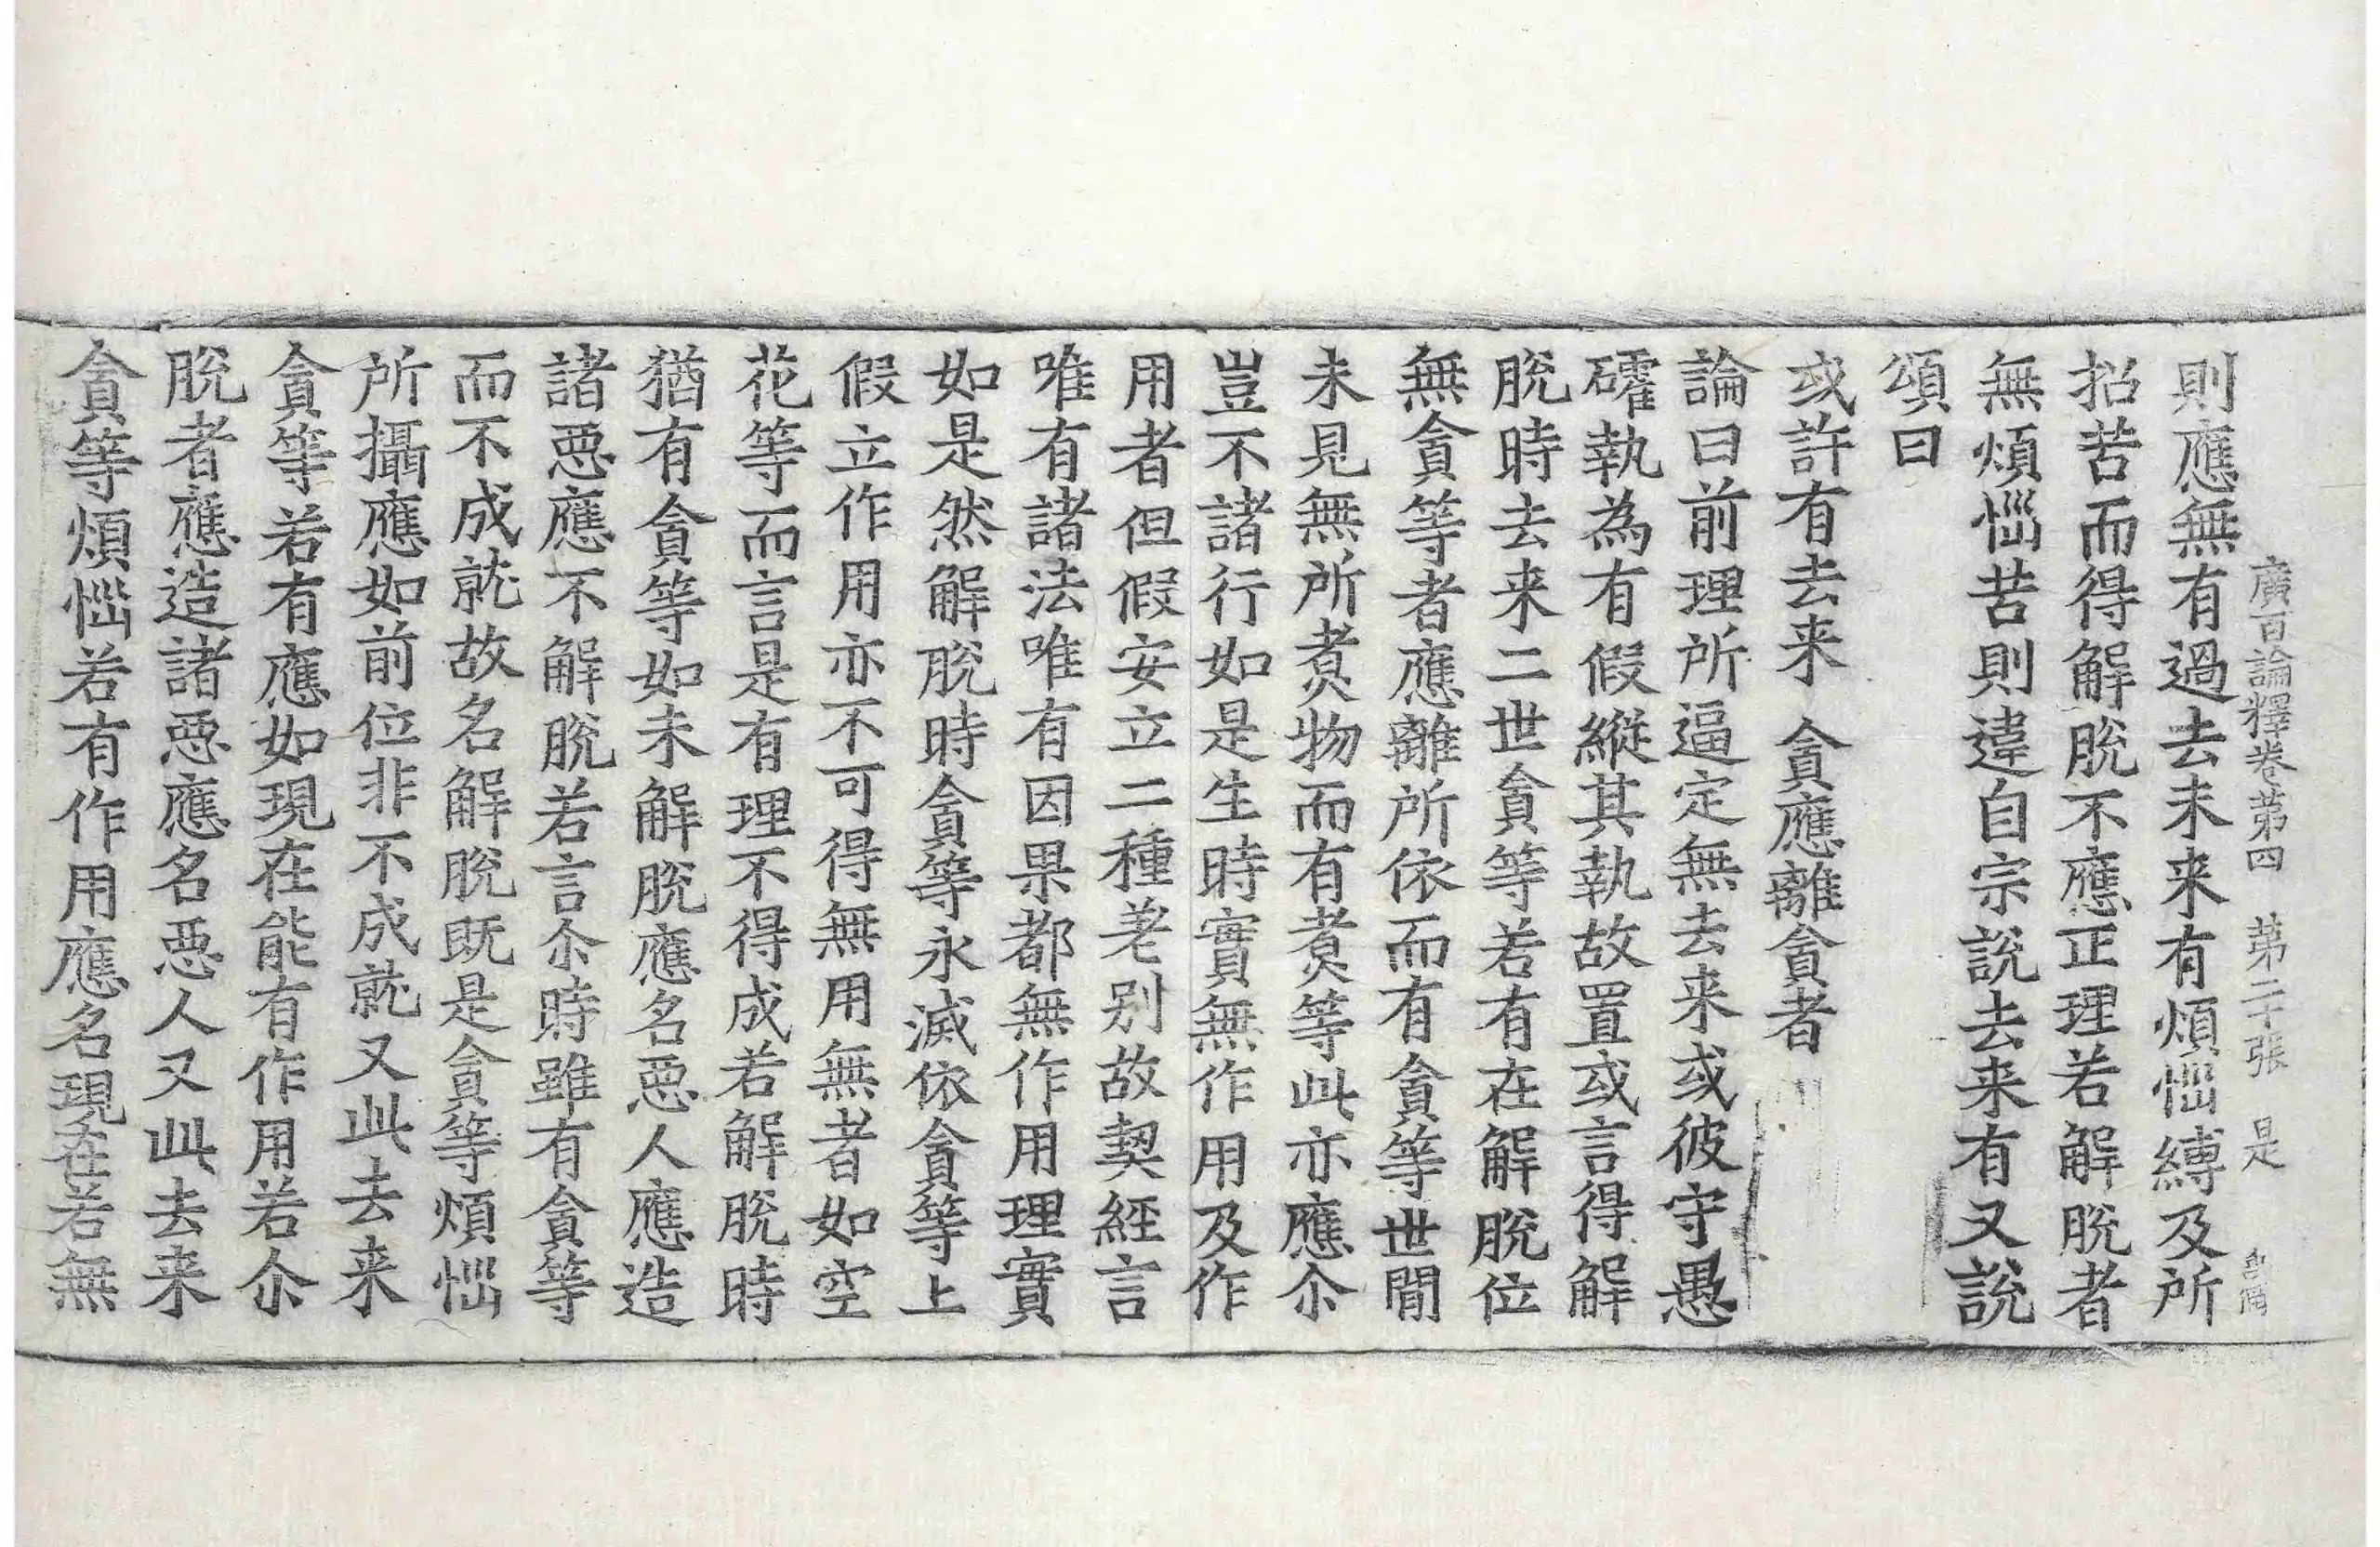 廣百論釋卷第四　第二十張　是
則應無有過去未来有煩惱縛及所
招苦而得解脫不應正理若解脫者
無煩惱苦則違自宗說去来有又說
頌曰
或許有去来　貪應離貪者
論曰前理所逼定無去来或彼守愚
確執為有假縱其執故置或言得解
脫時去来二世貪等若有在解脫位
無貪等者應離所依而有貪等世間
未見無所煮物而有煮等此亦應尒
豈不諸行如是生時實無作用及作
用者但假安立二種差別故契經言
唯有諸法唯有因果都無作用理實
如是然解脫時貪等永滅依貪等上
假立作用亦不可得無用無者如空
花等而言是有理不得成若解脫時
猶有貪等如未解脫應名惡人應造
諸惡應不解脫若言尒時雖有貪等
而不成就故名解脫既是貪等煩惱
所攝應如前位非不成就又此去来
貪等若有應如現在能有作用若尒
脫者應造諸惡應名惡人又此去来
貪等煩惱若有作用應名現在若無